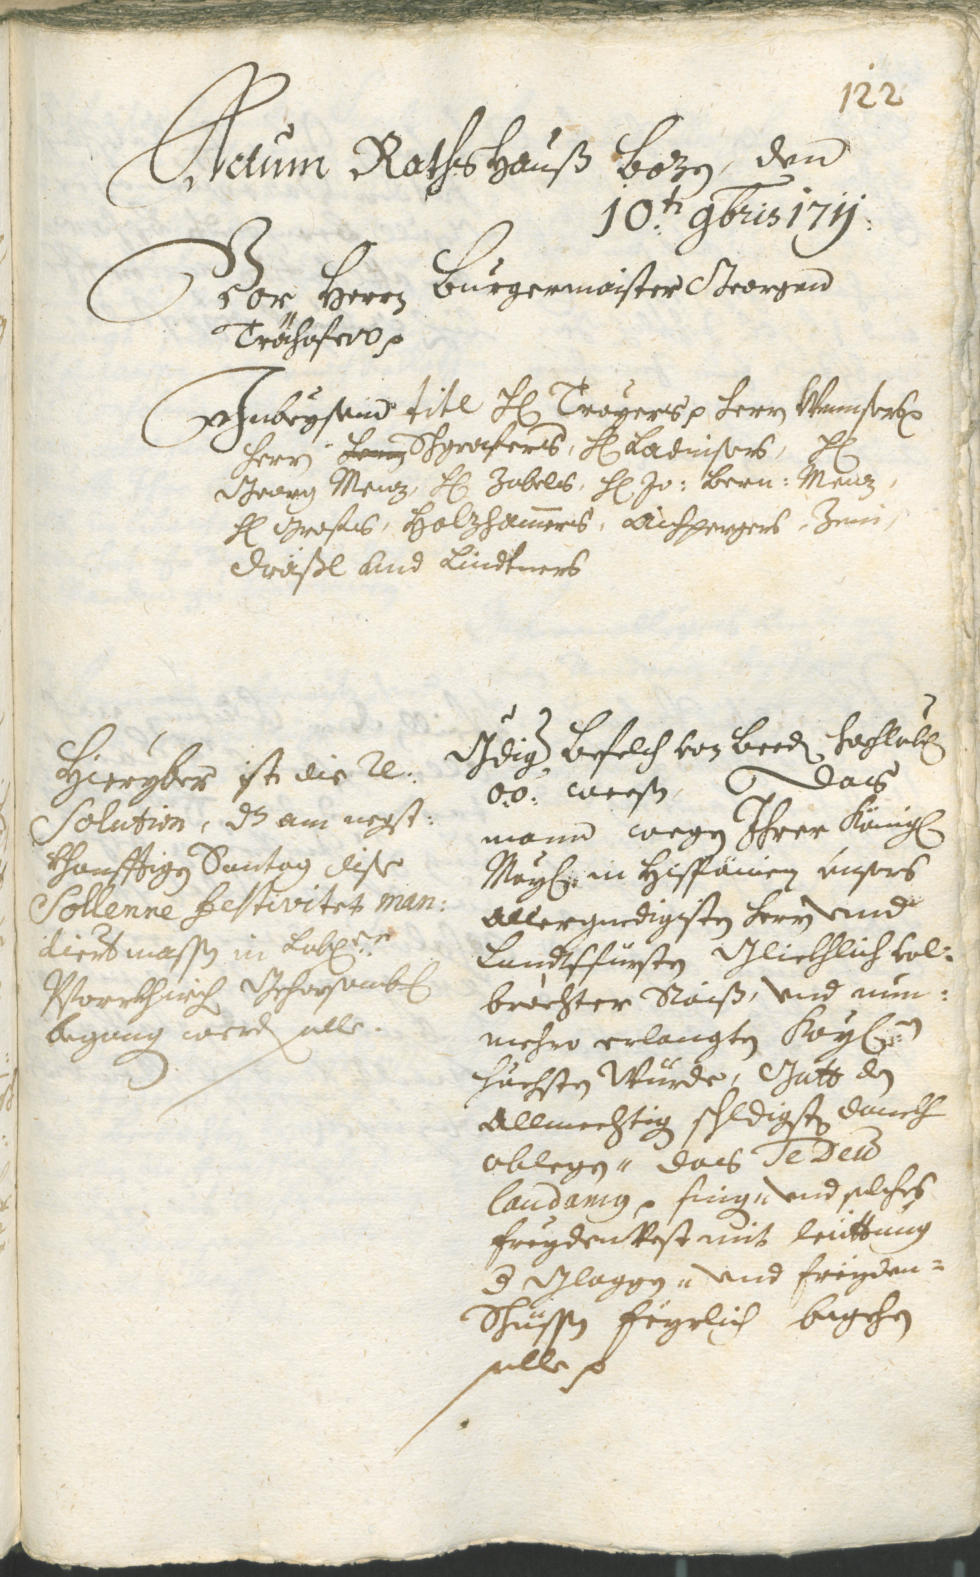 122
Actum Rathshauß Bozen, den
10.ti 9bris 1711.
Vor Herrn Burgermaister Georgen
Inbeysein titl H: Troyers p herrn
herrn H: Ladinsers, H:
Georg Menz, H: Zobels, H: Jo: Bern: Menz,
H: Grosens, Holzhamers, Aichpergers, Zeni,
und Lindtners
Hieryber ist die Re:
solution, dz am negst:
khonfftigen Sontag dise
Sollenne Festivitet man:
diertmassen in Lobl:er
Pfarrkhirch Gehorsambl:
begangen werden solle.
Gdig: Befelch von beeden hochlobl:
o:ö: weesen, das
mann wegen Ihrer Königl:
May: in Hispanien unsers
Allergnedigisten herrn und
Landtsfürsten Gliekhlich vol:
brachter Raiß, und nun:
mehro erlangten Kay:
hechsten Würde, Gott den
Allmechtigen schuldigsten danckh
ablegen, das Te Deum
laudamus p singen, und solches
freydenfest mit leittung
der Gloggen, und freyden:
Schüssen feyrlich begehen
solle p